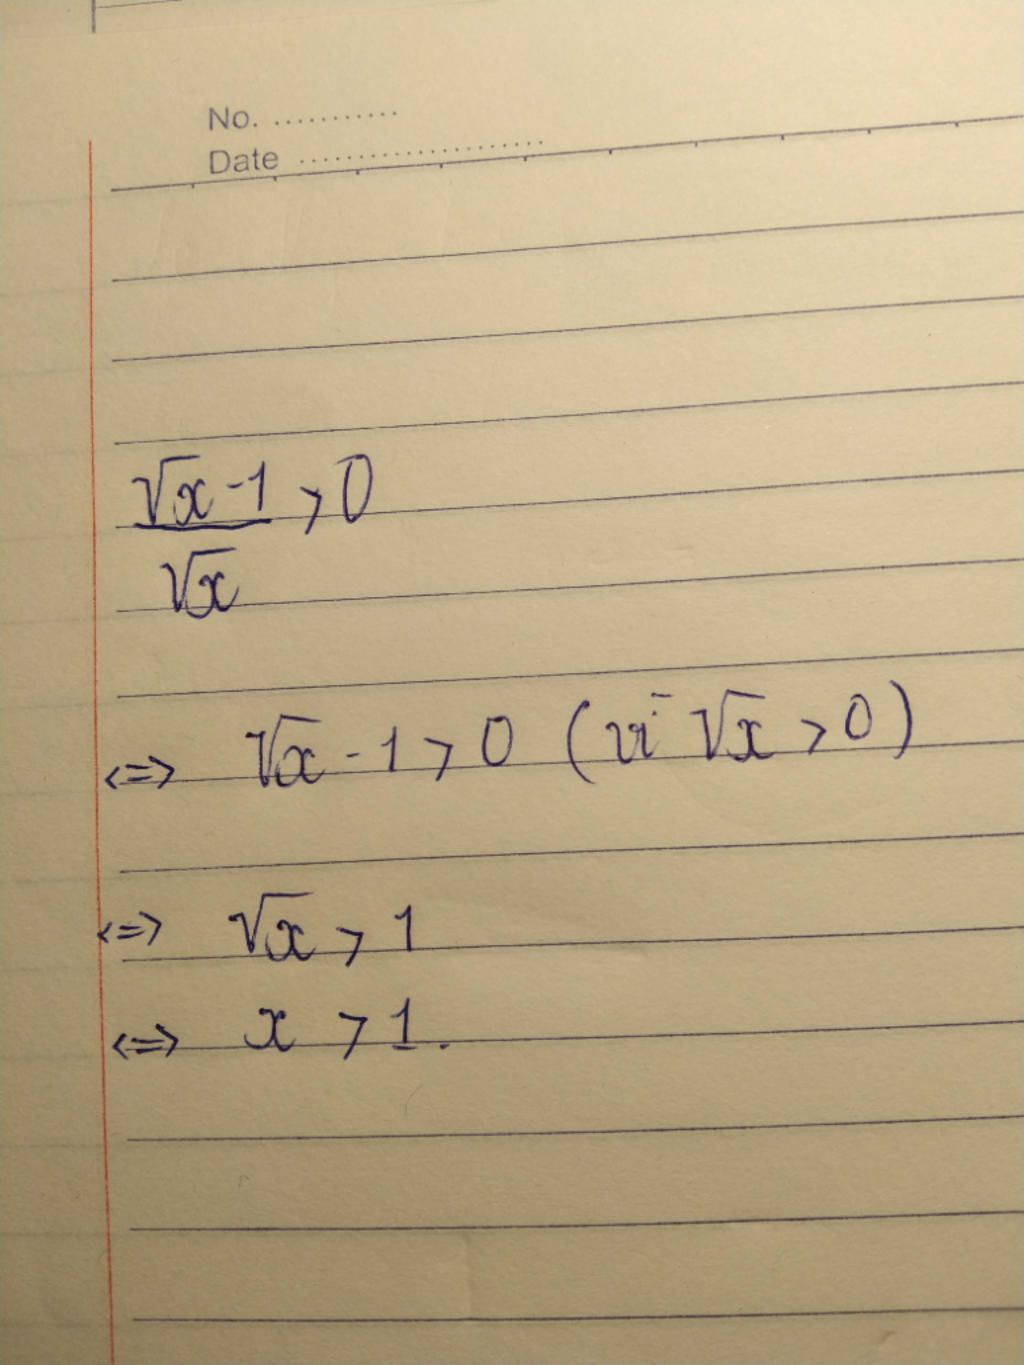 No. ...........
Date .....................
√x - 1 > 0
√x
<=> √x - 1 > 0 (vì √x > 0)
<=> √x > 1
<=> x > 1.